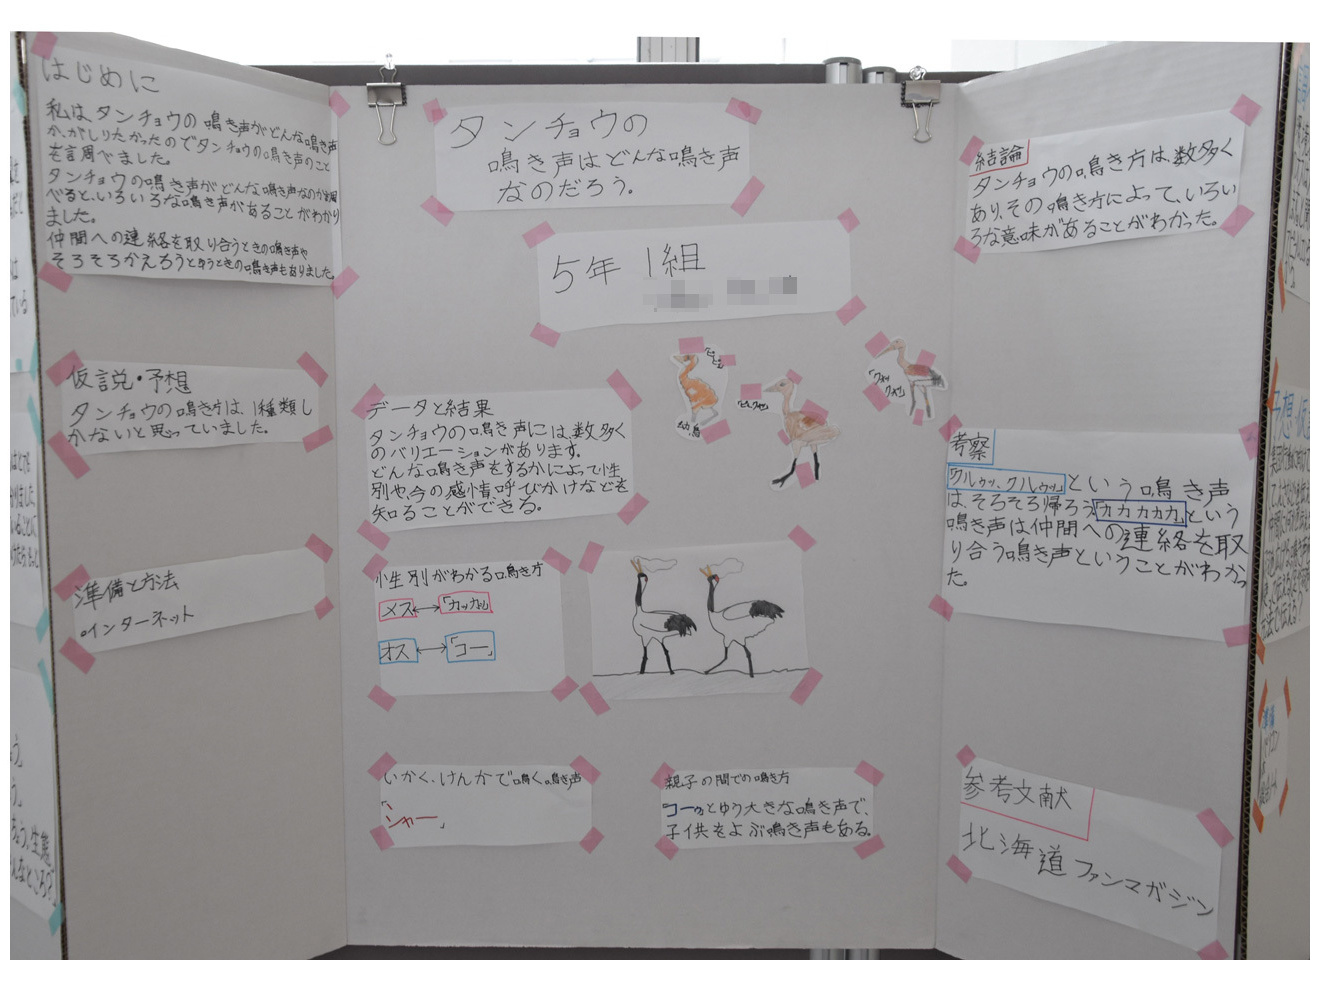 はじめに
私は、タンチョウの鳴き声がどんな鳴き声
か、がしりたかったのでタンチョウの鳴き声のこと
を調べました。
タンチョウの鳴き声がどんな鳴き声なのか調
べると、いろいろな鳴き声があることがわかり
ました。
仲間への連絡を取り合うときの鳴き声や
そろそろかえろうとゆうときの鳴き声もありました。
仮説・予想
タンチョウの鳴き方は、1種類し
かないと思っていました。
準備と方法
インターネット
タンチョウの
鳴き声はどんな鳴き声
なのだろう。
5年1組
データと結果
タンチョウの鳴き声には、数多く
のバリエーションがあります。
どんな鳴き声をするかによって性
別や、今の感情、呼びかけなどを
知ることができる。
幼鳥
性別がわかる鳴き方
メス↔「カッカッ」
オス↔「コー」
いかく、けんかで鳴く鳴き声
「シャー」
親子の間での鳴き方
コーッとゆう大きな鳴き声で、
子供をよぶ鳴き声もある。
結論
タンチョウの鳴き方は、数多く
あり、その鳴き方によって、いろい
ろな意味があることがわかった。
考察
「クルゥッ、クルゥッ」という鳴き声
は、そろそろ帰ろう、「カカカカカ」という
鳴き声は仲間への連絡を取
り合う鳴き声ということがわかっ
た。
参考文献
北海道ファンマガジン